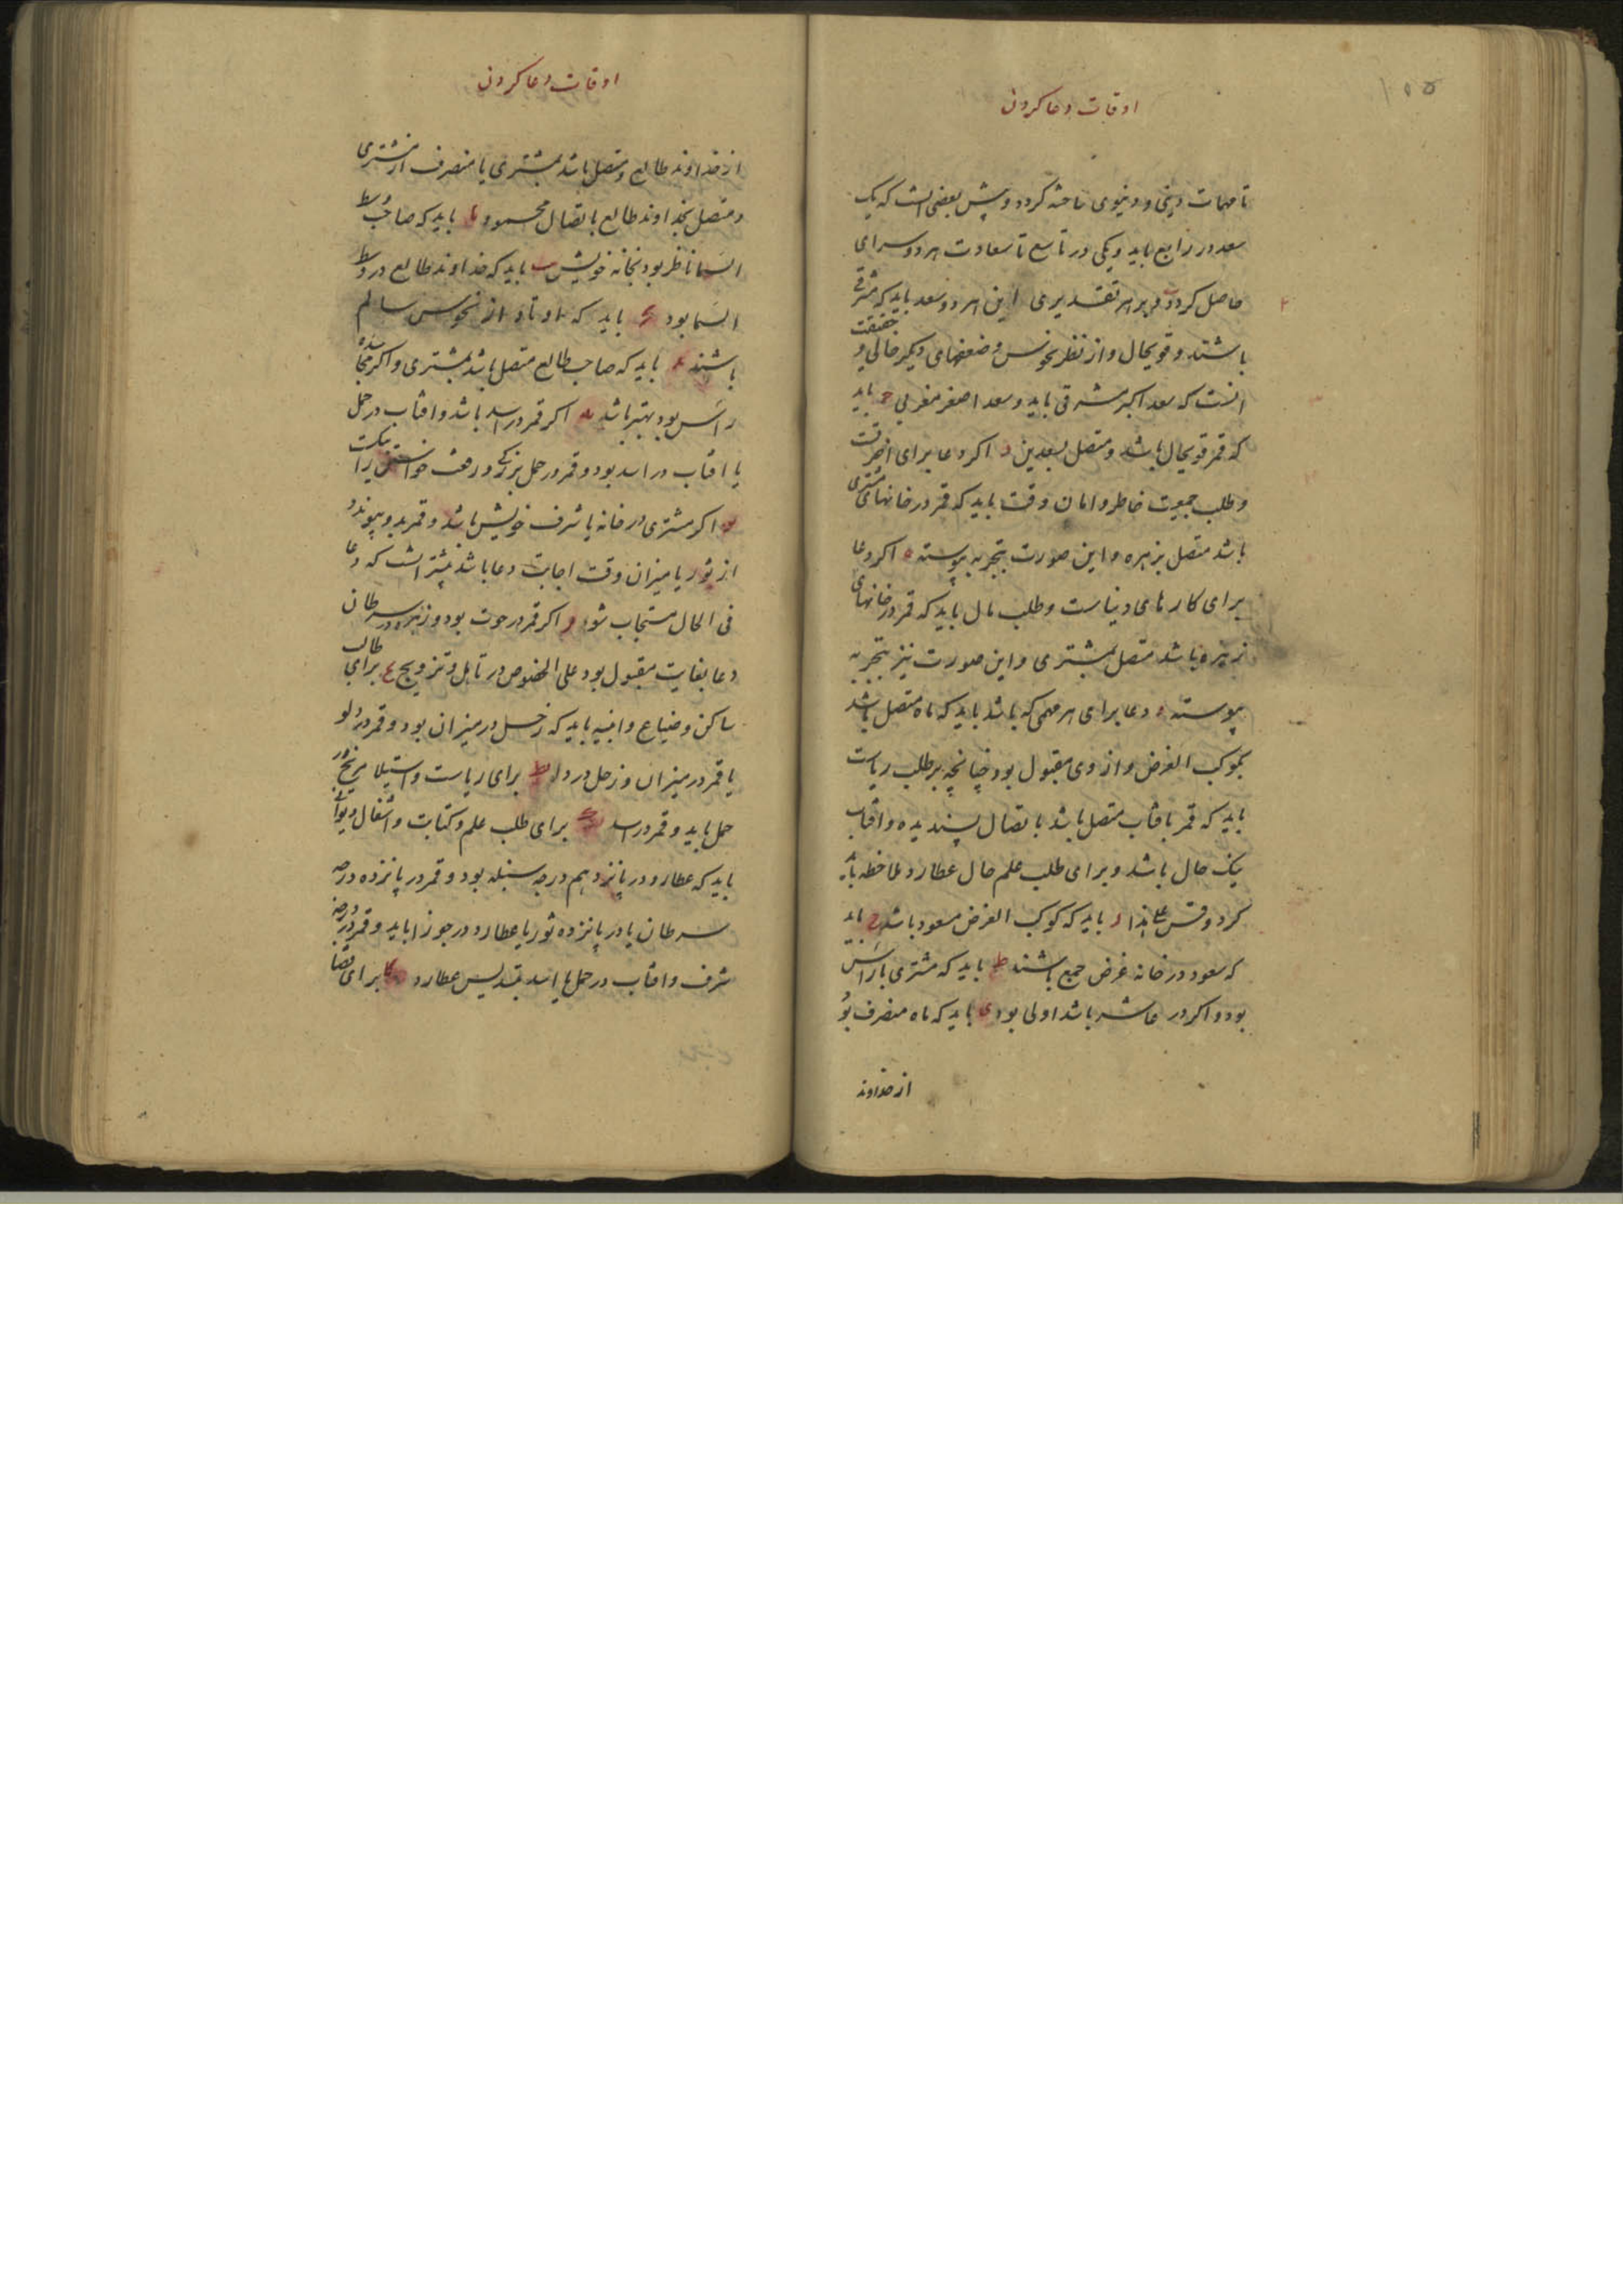 ۱۵۵
اوقات دعا کردن
تا مهمات دینی و دنیوی ساخته کردد و پیش بعضی انست که یک
سعد در رابع باید و یکی در تاسع تا سعادت هر دو سرای
حاصل کردد ب و بر هر تقدیری این هر دو سعد باید که مشرقی
باشند و قویحال و از نظر نحوس و ضعفهای دیکر خالی و حقیقت
انست که سعد اکبر مشرقی باید و سعد اصغر مغربی ج باید
که قمر قویحال باشد و متصل بسعدین د اکر دعا برای اخرتست
و طلب جمعیت خاطر و امان وقت باید که قمر در خانهای مشتری
باشد متصل بزهره و این صورت بتجربه پیوسته ه اکر دعا
برای کارهای دنیاست و طلب مال باید که قمر در خانهای
زهره باشد متصل بمشتری و این صورت نیز بتجربه
پیوسته و دعا برای هر مهمی که باشد باید که ماه متصل باشد
بکوکب الغرض و از وی مقبول بود چنانچه بر طلب ریاست
باید که قمر بافتاب متصل باشد باتصال پسندیده و افتاب
نیک حال باشد و برای طلب علم حال عطارد ملاحظه باید
کرد و قس علی هذا ز باید که کوکب الغرض مسعود باشد ح باید
که سعود در خانه غرض جمع باشند ط باید که مشتری با راس
بود و اکر در عاشر باشد اولی بود ی باید که ماه منصرف بود
از خداوند
اوقات دعا کردن
از خداوند طالع و متصل باشد بمشتری یا منصرف از مشتری
و متصل بخداوند طالع باتصال محمود یا باید که صاحب وسط
السما ناظر بود بخانه خویش یب باید که خداوند طالع در وسط
السما بود یج باید که اوتاد از نحوس سالم
باشند ید باید که صاحب طالع متصل باشد بمشتری و اکر مجاسده
راس بود بهتر باشد یه اکر قمر در اسد باشد و افتاب در حمل
یا افتاب در اسد بود و قمر در حمل بزرکی و رفعت خواستن را نیکست
یو اکر مشتری در خانه یا شرف خویش باشد و قمر بدو پیوندد
از ثور یا میزان وقت اجابت دعا باشد بیشتر انست که دعا
فی الحال مستجاب شود و اکر قمر در حوت بود و زهره در سرطان
دعا بغایت مقبول بود علی الخصوص در تاهل و تزویج برای طالب
ساکن و ضیاع و ابنیه باید که زحل در میزان بود و قمر در دلو
یا قمر در میزان و زحل در دلو یط برای ریاست و استیلا مریخ در
حمل باید و قمر در اسد ک برای طلب علم و کتابت و اشغال دیوانی
باید که عطارد در پانزدهم درجه سنبله بود و قمر در پانزده درجه
سرطان یا در پانزده ثور یا عطارد در جوزا باید و قمر در درجه
شرف و افتاب در حمل یا اسد بتسدیس عطارد کا برای قضا